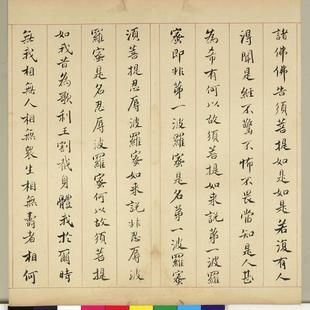 諸佛佛告須菩提如是如是若復有人
得聞是經不驚不怖不畏當知是人甚
為希有何以故須菩提如來說第一波羅
蜜即非第一波羅蜜是名第一波羅蜜
須菩提忍辱波羅蜜如來說非忍辱波
羅蜜是名忍辱波羅蜜何以故須菩提
如我昔為歌利王割截身體我於爾時
無我相無人相無衆生相無壽者相何